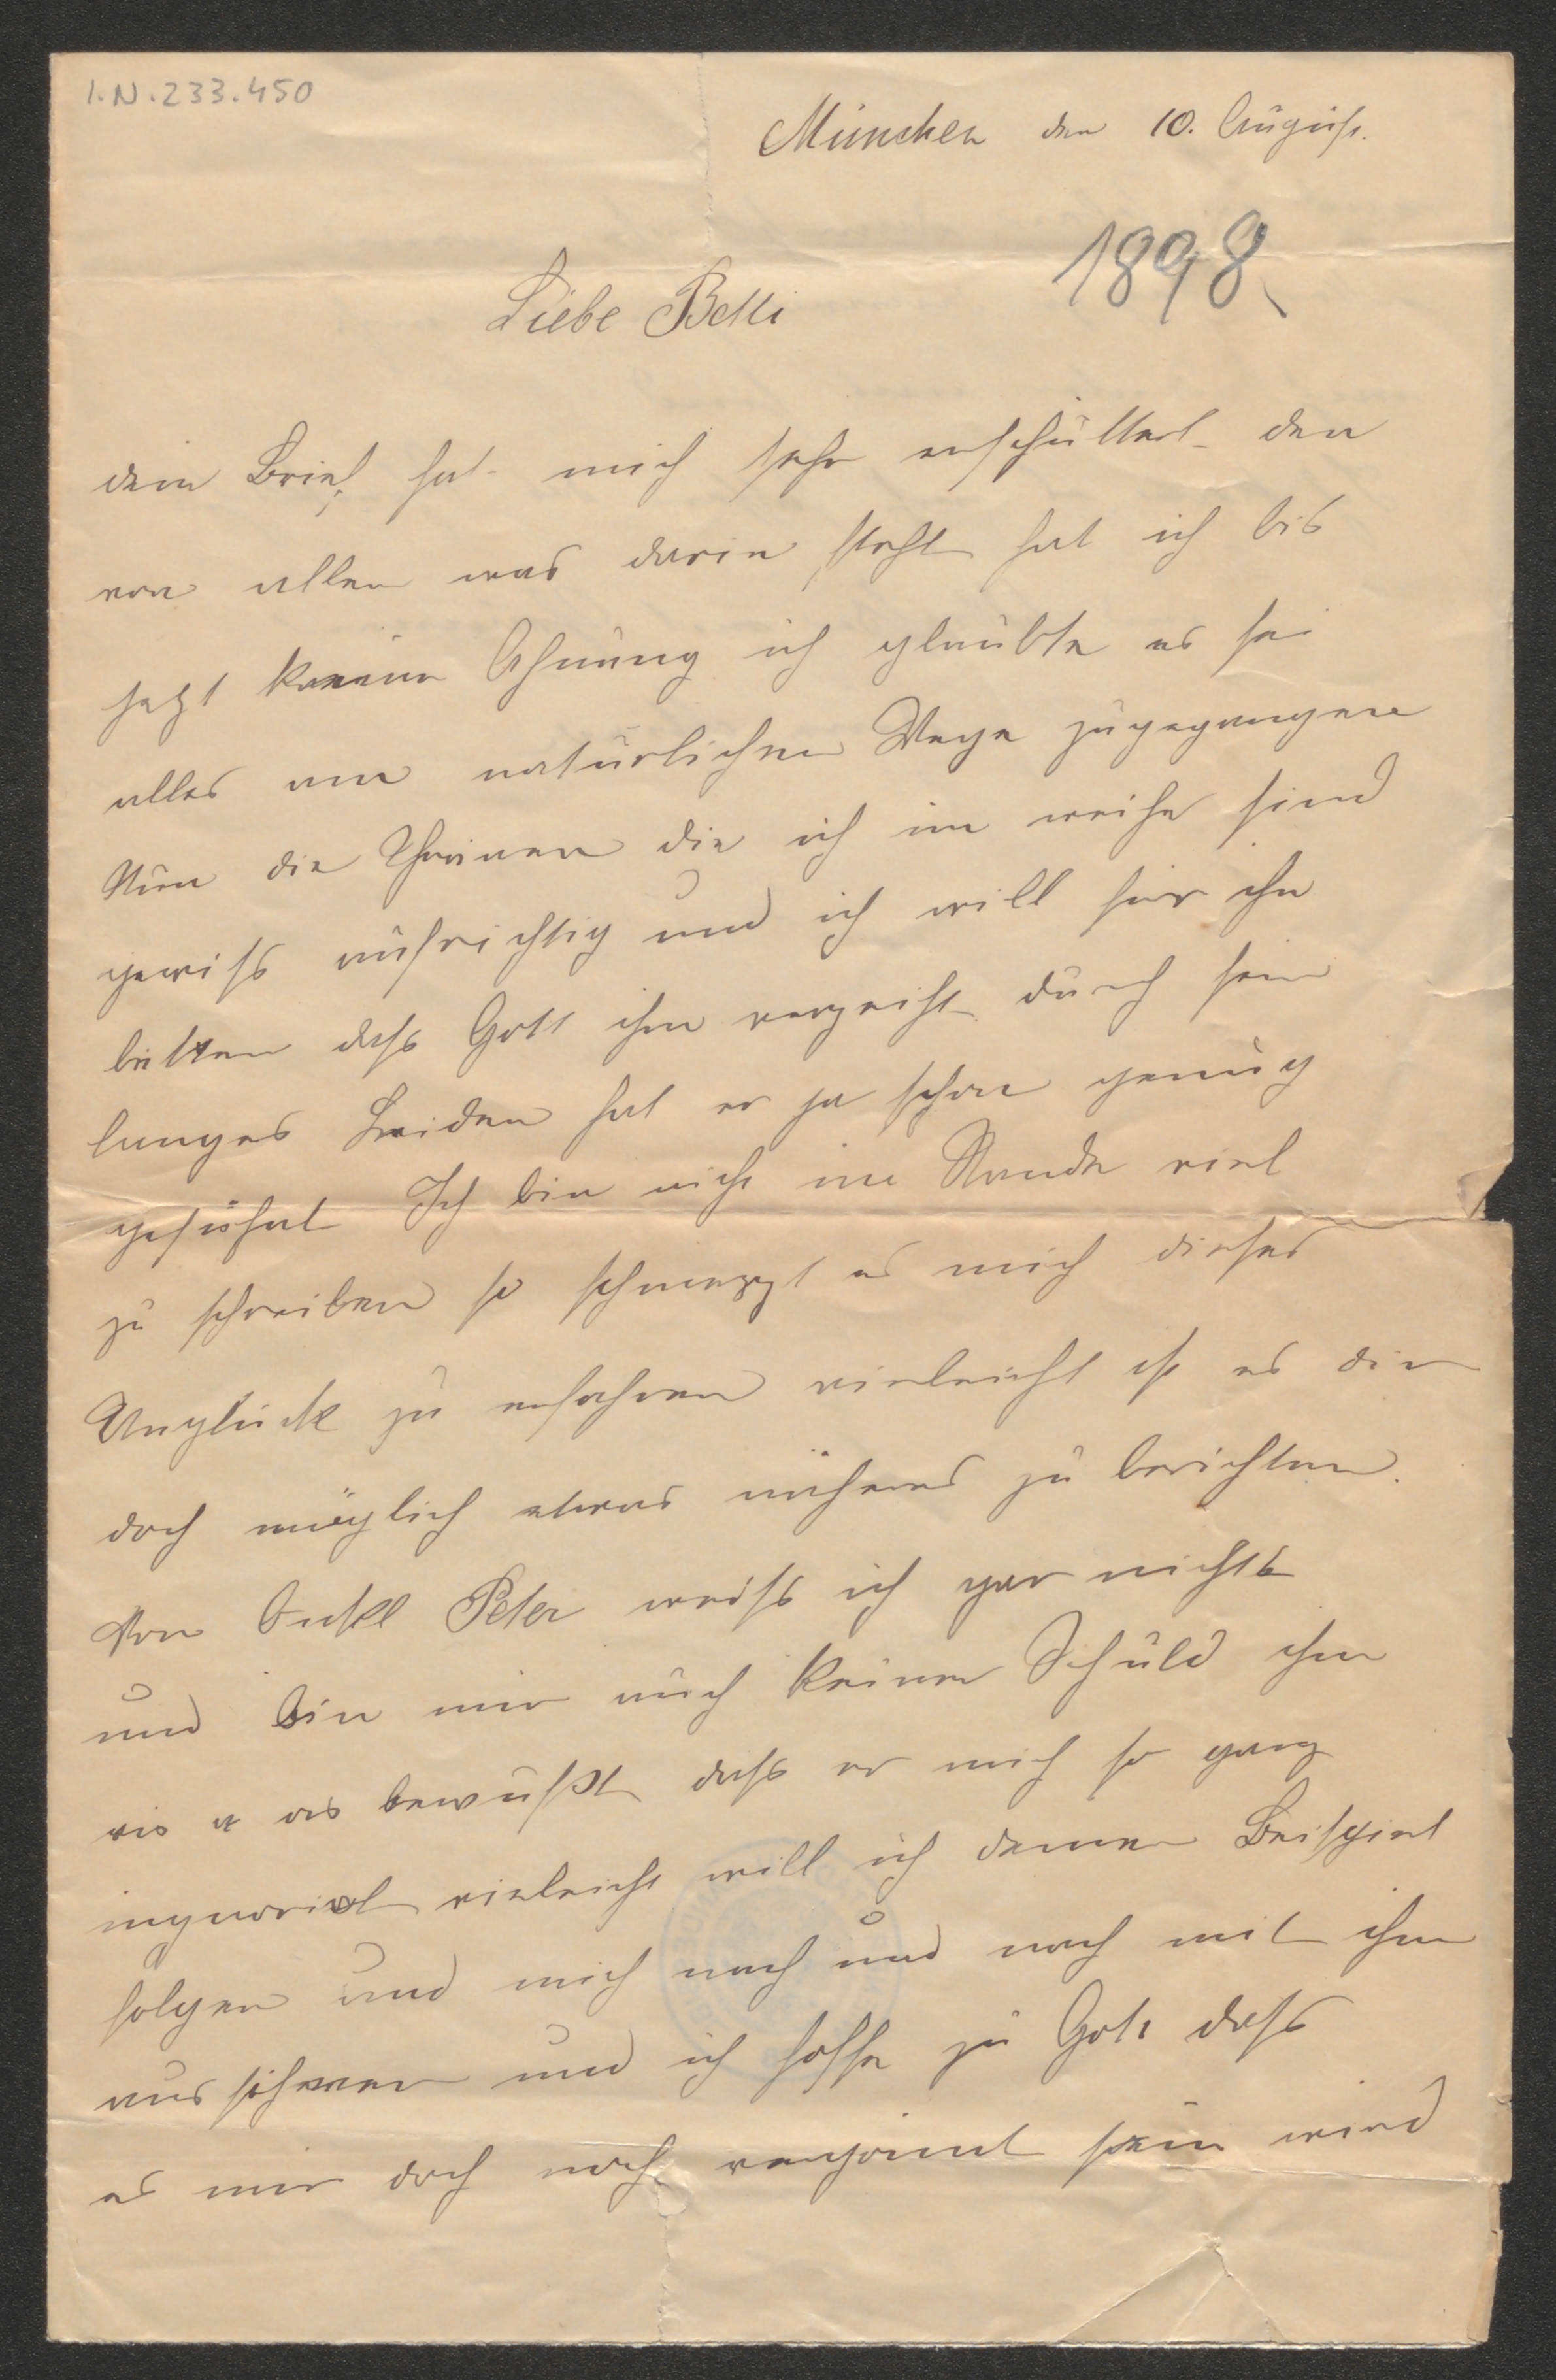 I.N.233.450
München den 10. August.
1898
Liebe Betti
dein Brief hat mich sehr erschüttert den
von allen was darin steht hat ich bis
jetzt keine Ahnung ich glaubte es sei
alles am natürlichen Wege zugegangen
Nun die Thränen die ich im weihe sind
gewiss aufrichtig und ich will für ihn
bitten dass Gott ihm verzeiht durch sein
langes Leiden hat er ja schon genug
gesühnt Ich bin nicht im Stande viel
zu schreiben so schmerzt es mich dieses
Unglück zu erfahren vieleicht ist es dir
doch möglich etwas näheres zu berichten.
Von Onkl Peter weiss ich gar nichts
und bin mir auch keiner Schuld ihm
vis a vis bewußt dass er mich so ganz
ingnorirt vieleicht will ich deinen Beispiel
folgen und mich nach und nach mit ihm
aussöhnen und ich hoffe zu Gott dass
es mir doch noch vergönnt sein wird